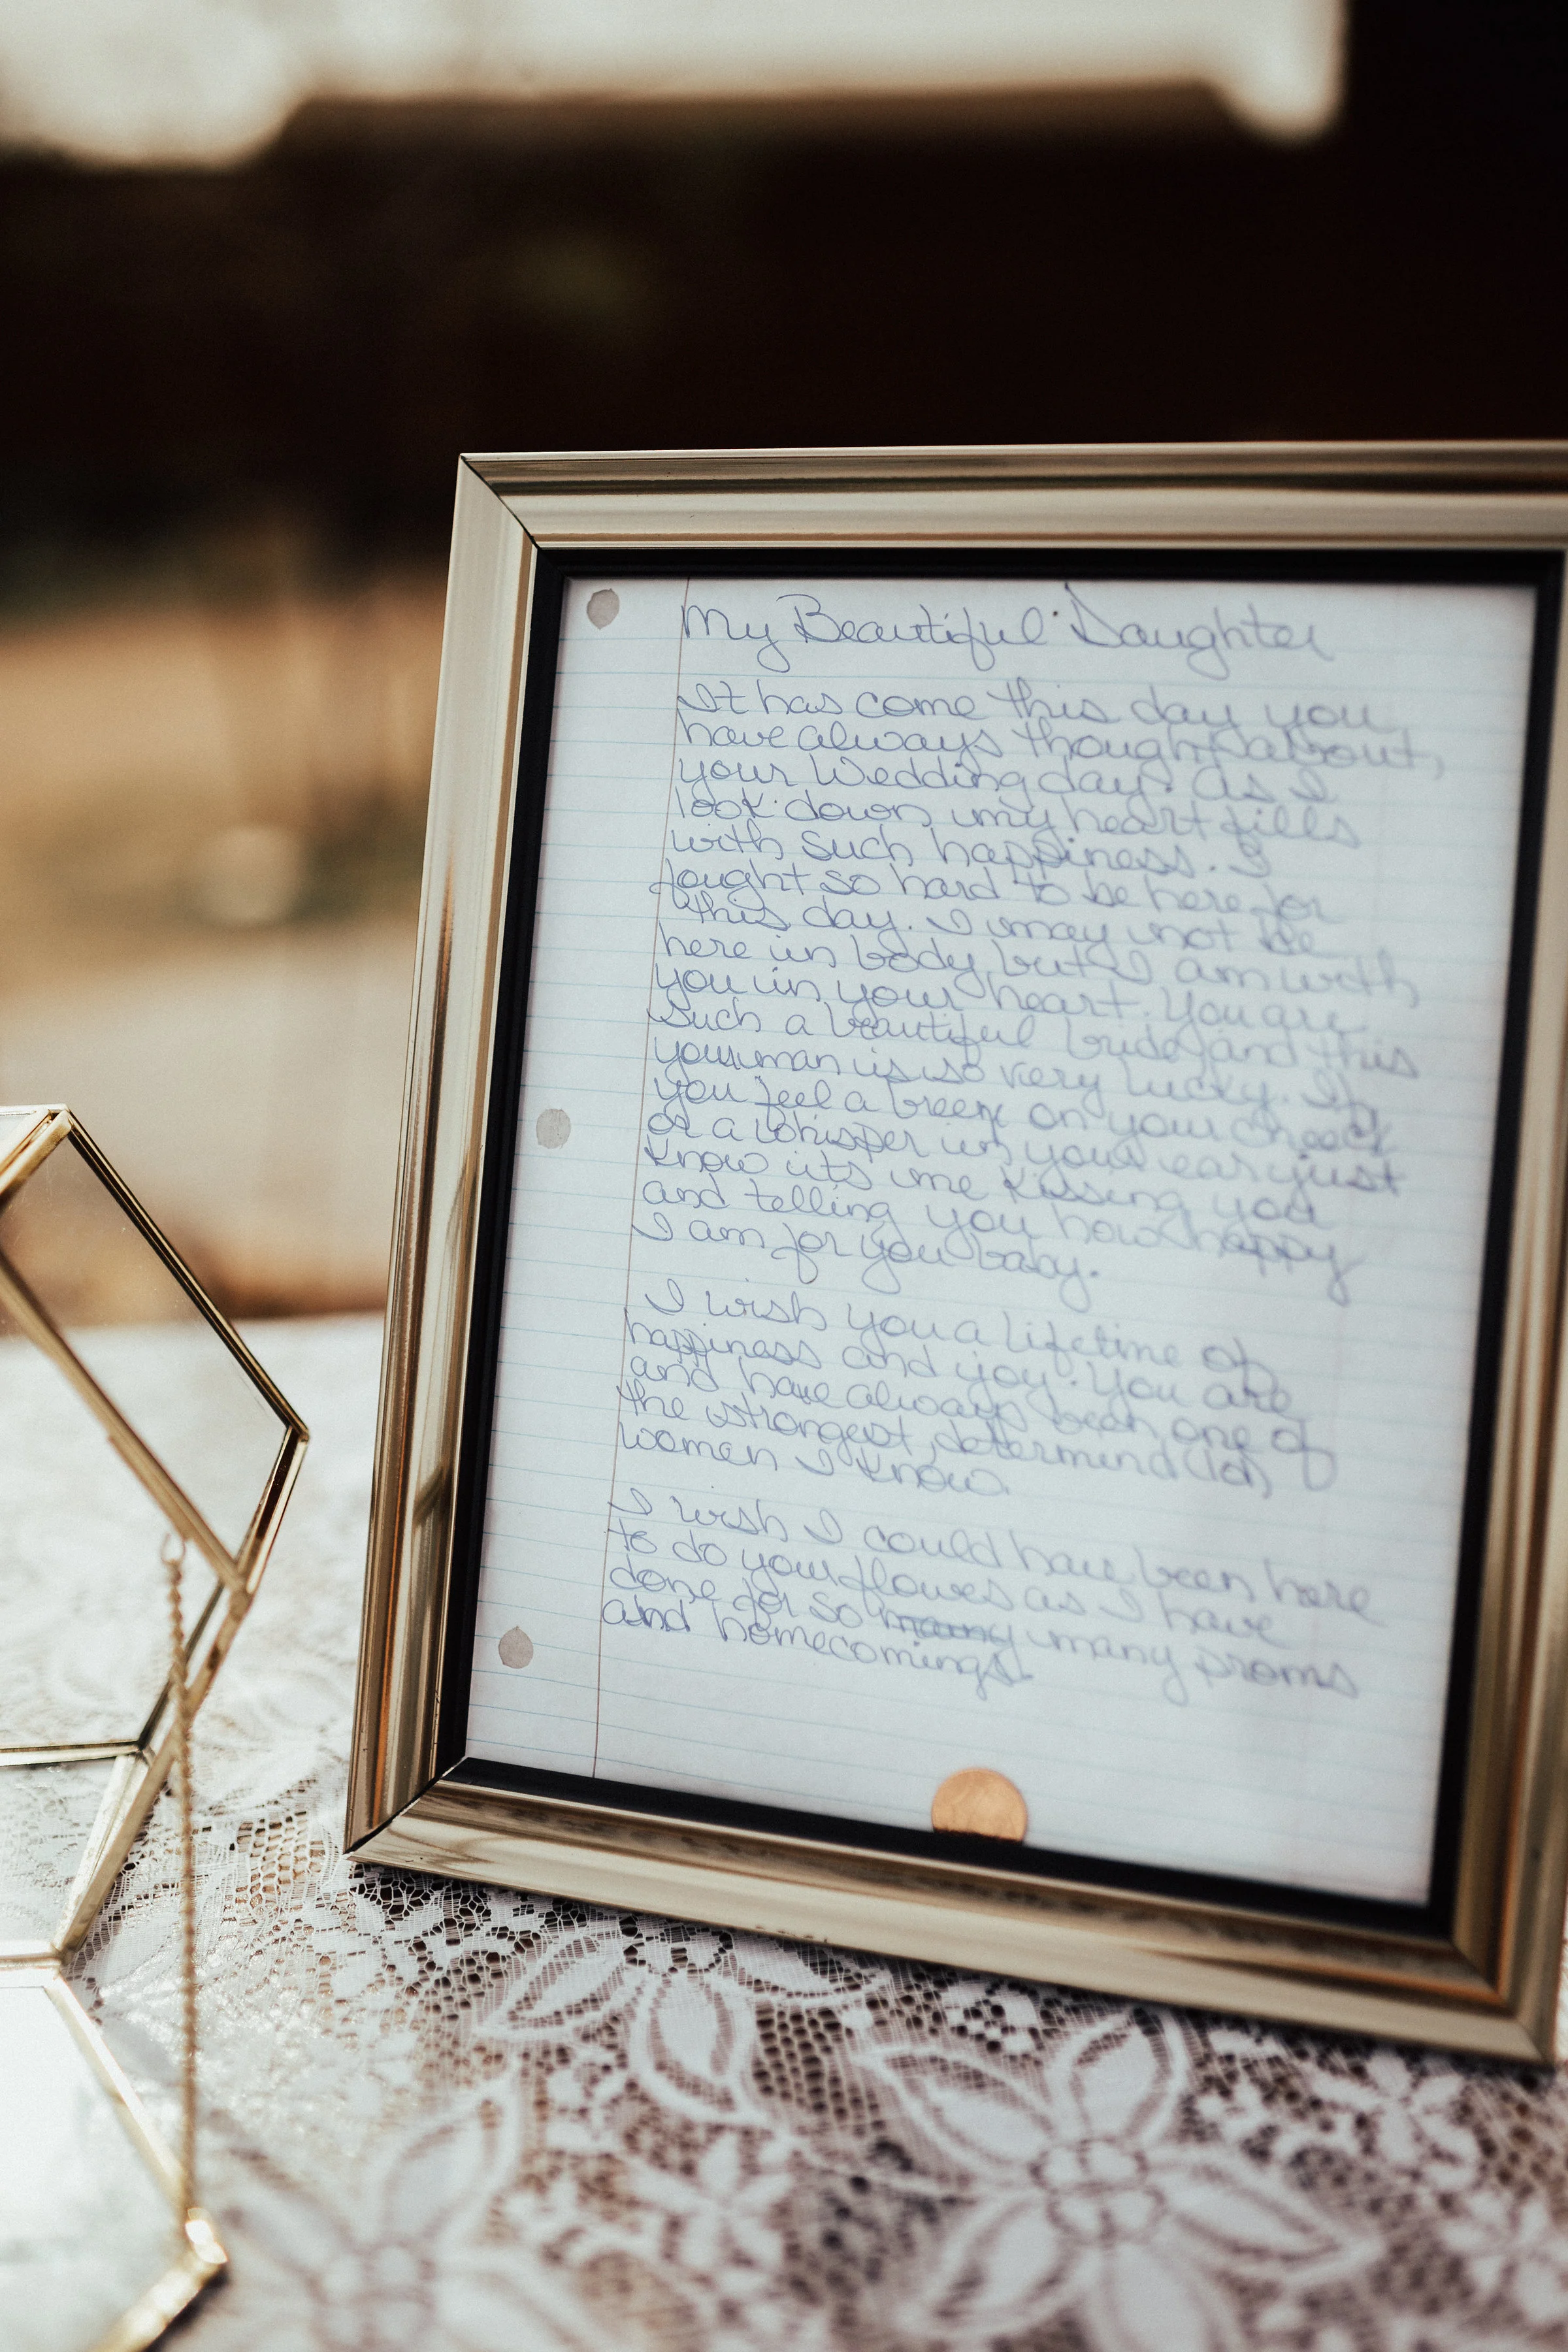 My Beautiful Daughter
It has come this day you
have always thought about,
your Wedding day. As I
look down my heart fills
with such happiness. I
fought so hard to be here for
this day. I may not be
here in body but I am with
you in your heart. You are
such a beautiful bride and this
man is so very lucky. If
you feel a breeze on your cheeck
or a whisper in your ear just
know its me kissing you
and telling you how happy
I am for you baby.
I wish you a lifetime of
happiness and joy. You are
and have always been one of
the strongest, determind
women I know.
I wish I could have been here
to do your flowes as I have
done for so many many proms
and homecomings.